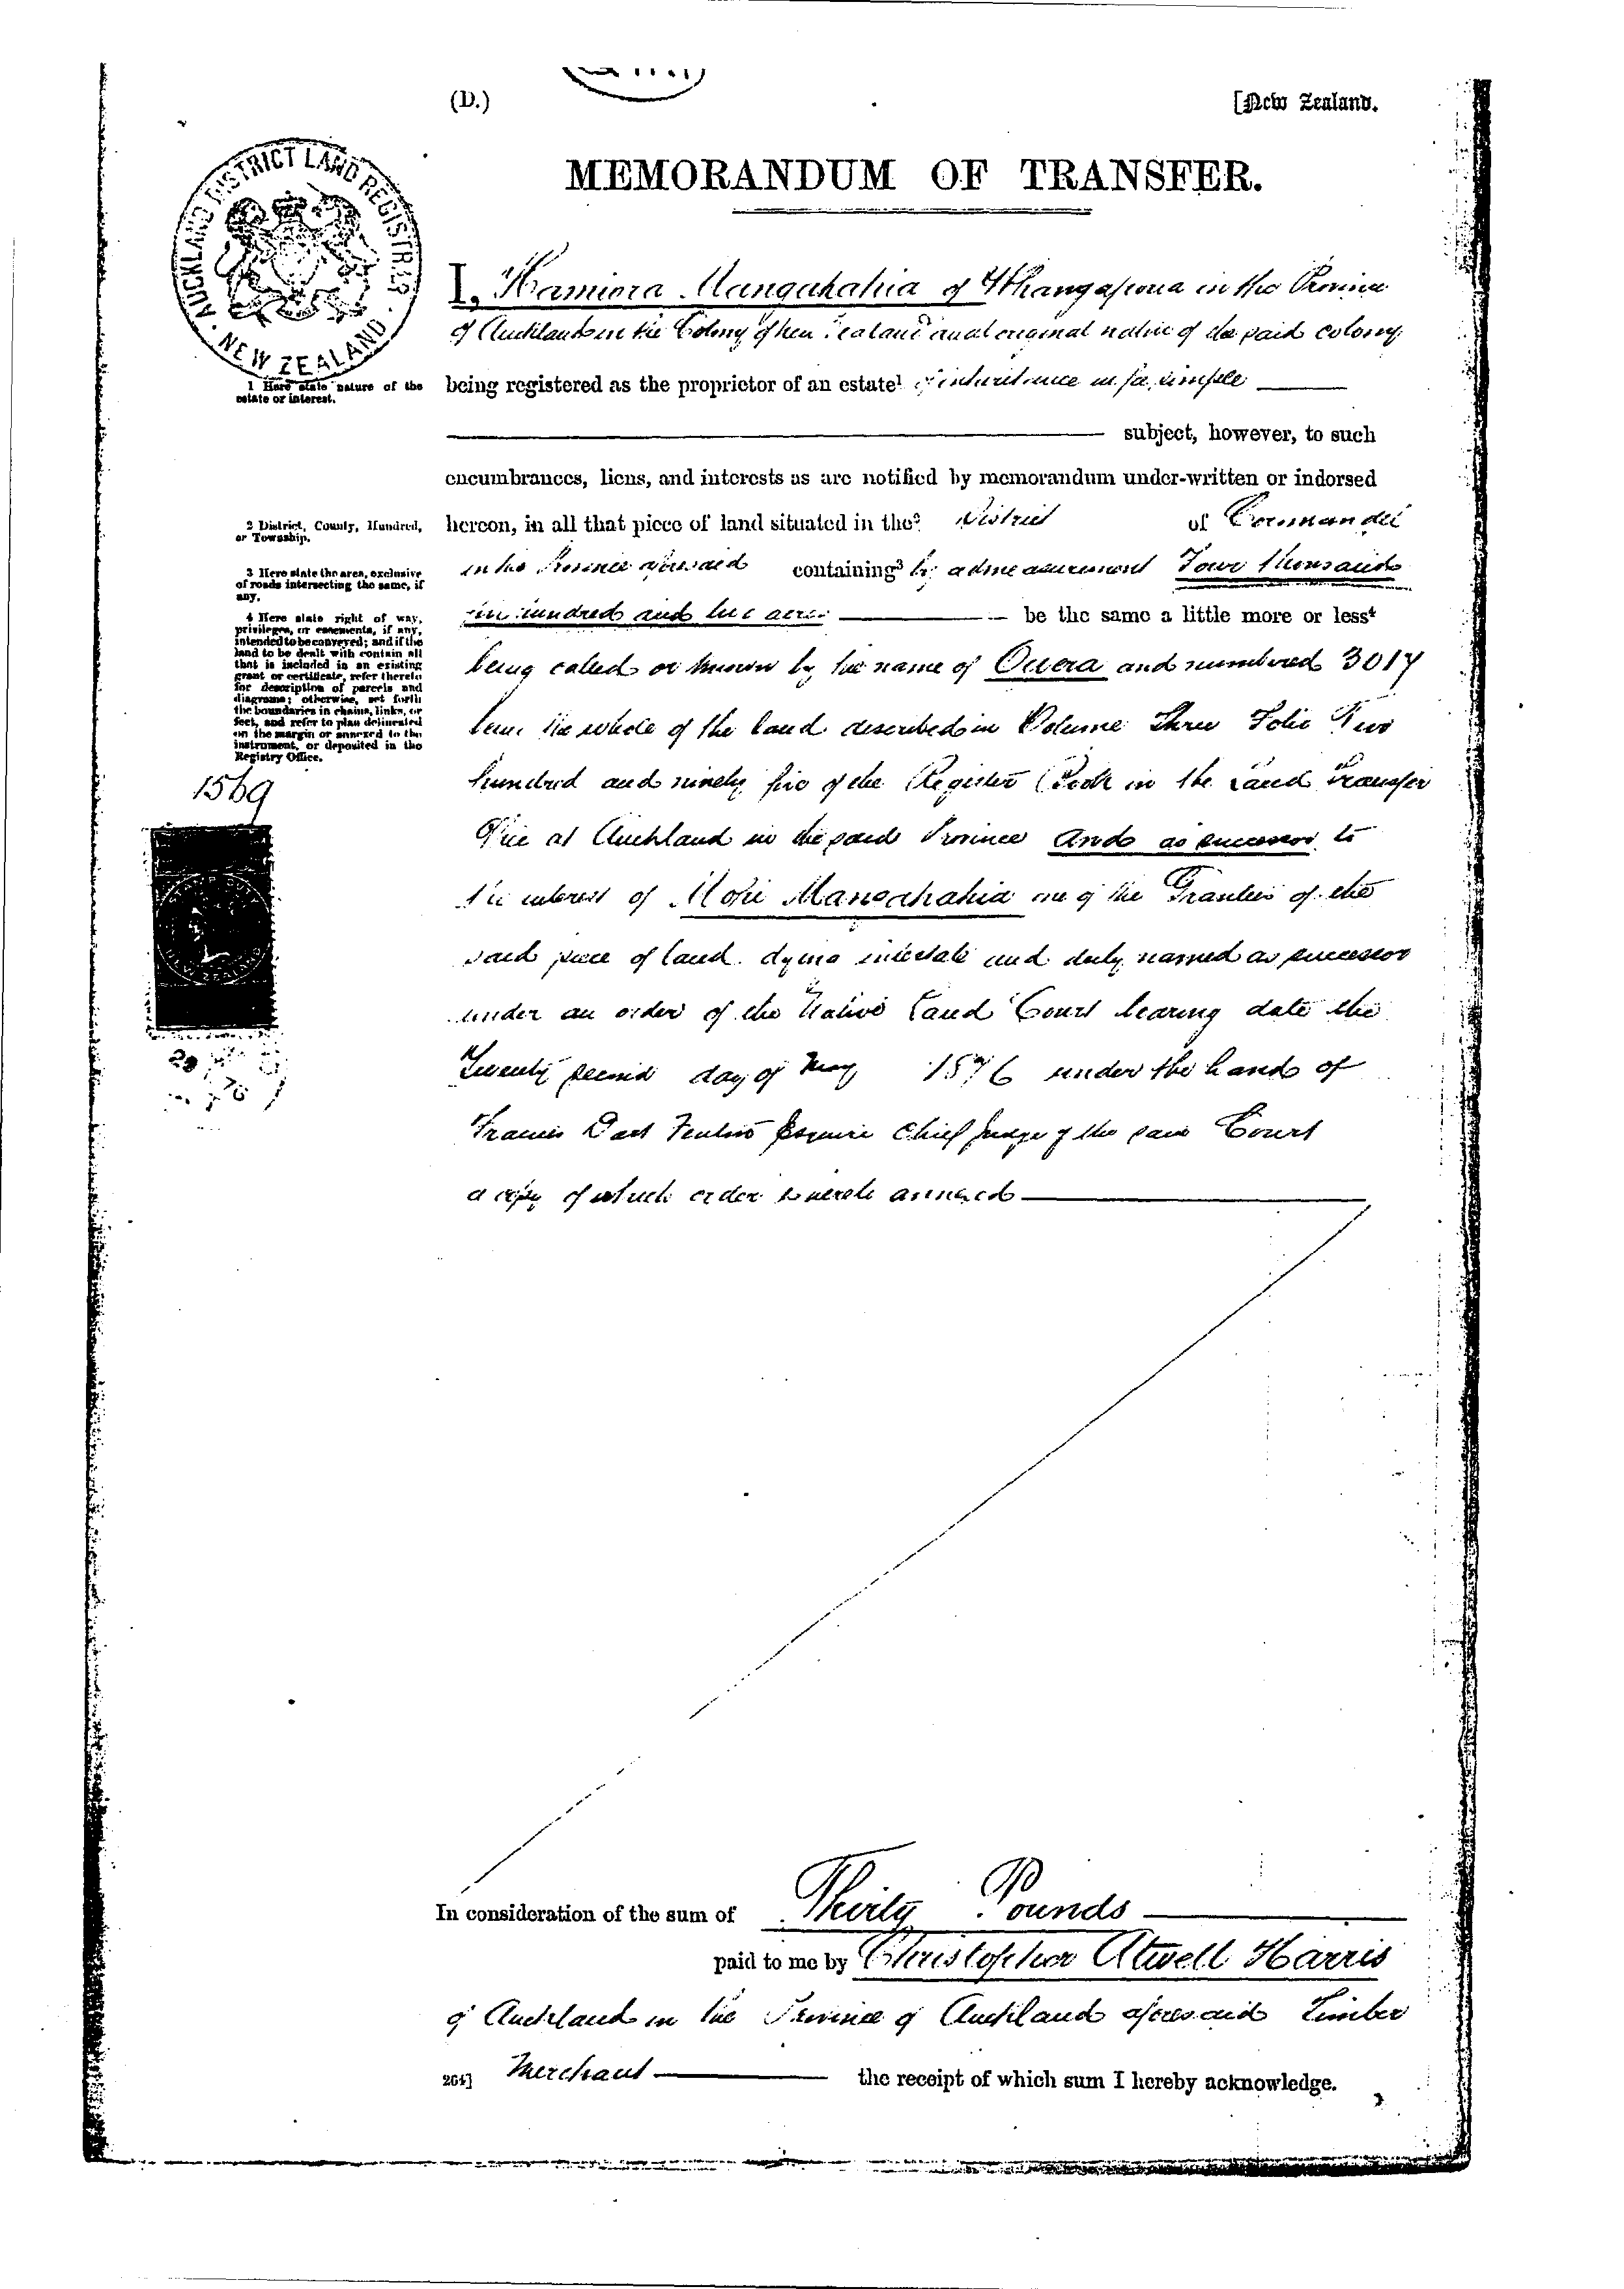 (D.)
[New Zealand.
MEMORANDUM OF TRANSFER.
AUCKLAND DISTRICT LAND REGISTRER · NEW ZEALAND ·
I, Hamiora Mangakahia of Whangapoua in the Province
of Auckland in the Colony of New Zealand an aboriginal native of the said colony
1 Here state nature of the
estate or interest.
being registered as the proprietor of an estate¹ of inheritance in fee simple
subject, however, to such
encumbrances, liens, and interests as are notified by memorandum under-written or indorsed
2 District, County, Hundred,
or Township.
hereon, in all that piece of land situated in the² District of Coromandel
3 Here state the area, exclusive
of roads intersecting the same, if
any.
in the Province aforesaid containing³ by admeasurement Four thousand
hundred and acres be the same a little more or less⁴
4 Here state right of way,
privileges, or easements, if any,
intended to be conveyed; and if the
land to be dealt with contain all
that is included in an existing
grant or certificate, refer thereto
for description of parcels and
diagrams; otherwise, set forth
the boundaries in chains, links, or
feet, and refer to plan delineated
on the margin or annexed to the
instrument, or deposited in the
Registry Office.
being called or known by the name of Owera and numbered 3017
being the whole of the land described in Volume Three Folio Two
hundred and ninety five of the Register Book in the Land Transfer
Office at Auckland in the said Province And as successor to
the interest of Mohi Mangakahia one of the Grantees of the
said piece of land dying intestate and duly named as successor
under an order of the Native Land Court bearing date the
Twenty second day of May 1876 under the hand of
Francis Dart Fenton Esquire Chief Judge of the said Court
a copy of which order is hereto annexed
1569
In consideration of the sum of Thirty Pounds
paid to me by Christopher Atwell Harris
of Auckland in the Province of Auckland aforesaid Timber
264] Merchant the receipt of which sum I hereby acknowledge.